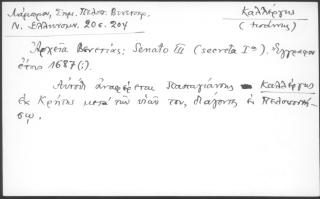 Λάμπρου, Σημ. Πελοπ. Βενετοκρ.
Ν. Ελληνομν. 20 σ. 204
Καλλέργης
(Ιωάννης)
Ἀρχεῖα Βενετίας: Senato III (secreta Iª). Ἔγγραφον
ἔτους 1687(;).
Αὐτόθι ἀναφέρεται Παπαγιάννης Καλλέργης
ἐκ Κρήτης μετὰ τῶν υἱῶν του, διάγοντες ἐν Πελοποννή-
σῳ.